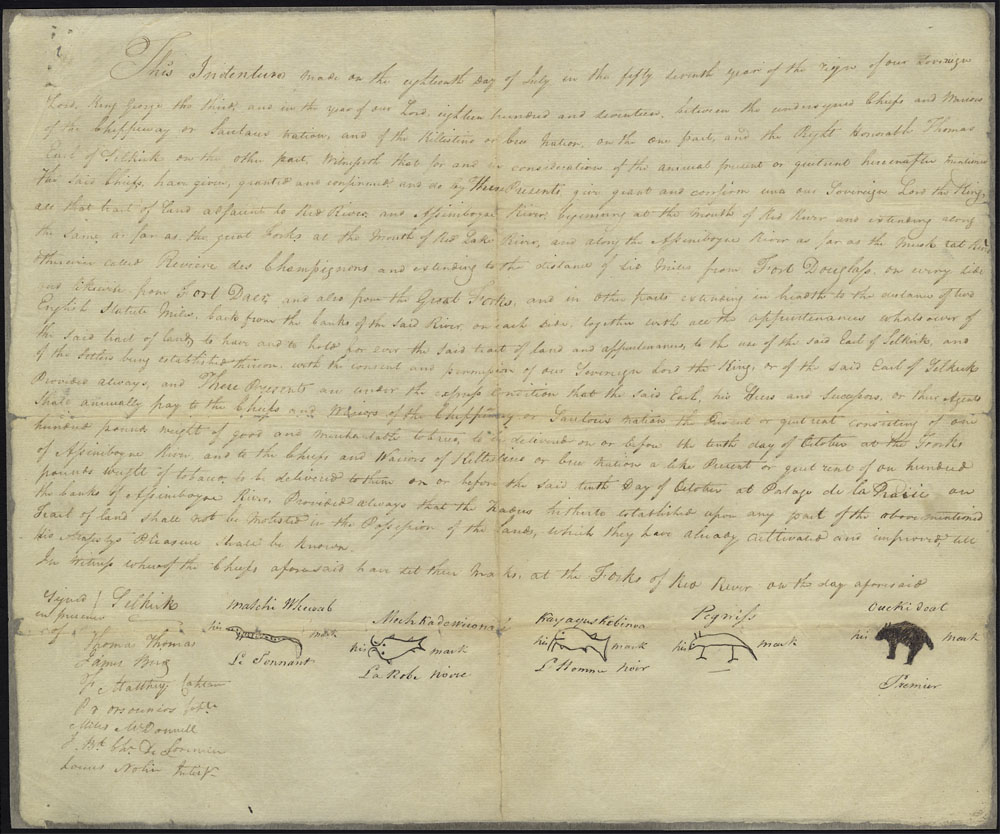 This Indenture made on the eighteenth day of July in the fifty seventh year of the reign of our Sovereign
Lord, King George the third, and in the year of our Lord, eighteen hundred and seventeen, between the undersigned Chiefs and Warriors
of the Chippeway or Saulteaux nation, and of the Killistine or Cree Nation, on the one part, and the Right Honorable Thomas
Earl of Selkirk on the other part, Witnesseth that for and in consideration of the annual present or quitrent hereinafter mentioned
the said Chiefs, have given, granted and confirmed and do by These Presents, give grant and confirm unto our Sovereign Lord the King,
all that tract of land adjacent to Red River and Assiniboyne River, beginning at the Mouth of Red River and extending along
the same as far as the great Forks at the Mouth of Red Lake River, and along the Assiniboyne River as far as the Musk rat River
otherwise called Reviere des Champignons and extending to the distance of Six Miles from Fort Douglass on every side
and likewise from Fort Daer, and also from the Great Forks, and in other parts extending in breadth to the distance of two
English Statute Miles, back from the banks of the said River, on each side, together with all the appurtenances whatsoever of
the said tract of land, to have and to hold for ever the said tract of land and appurtenances, to the use of the said Earl of Selkirk, and
of the Settlers being established thereon, with the consent and permission of our Sovereign Lord the King, or of the said Earl of Selkirk
Provided always, and These Presents are under the express Condition that the said Earl, his Heirs and Successors, or their Agents
Shall annually pay to the Chiefs and Warriors of the Chippeway or Saulteaux nation the Present or quit rent consisting of one
hundred pounds weight of good and merchantable tobacco, to be delivered on or before the tenth day of October at the Forks
of Assiniboyne River, and to the Chiefs and Warriors of Killistine or Cree Nation a like Present or quit rent of one hundred
pounds weight of tobacco, to be delivered to them on or before the said tenth Day of October at Portage de la Prairie on
the banks of Assiniboyne River. Provided always that the Traders hitherto established upon any part of the above mentioned
Tract of land shall not be molested in the Possession of the lands, which they have already cultivated and improved, till
His Majestys Pleasure Shall be known.
In Witness whereof the Chiefs aforesaid have set their Marks, at the Forks of Red River on the day aforesaid
Signed in presence of
Selkirk
Thomas Thomas
James Bird
F. Matthey Captain
P d orsonnens Capt.
Miles McDonnell
J. Bte Chr. De Lorimier
Louis Nolin Interp.
Matchi Wheseab
his mark
Le Sonnant
Mechkadewikonaie
his mark
La Robe Noire
Kayajieskebinoa
his mark
L'Homme Noir
Pegwiss
his mark
Ouckidoat
his mark
Premier